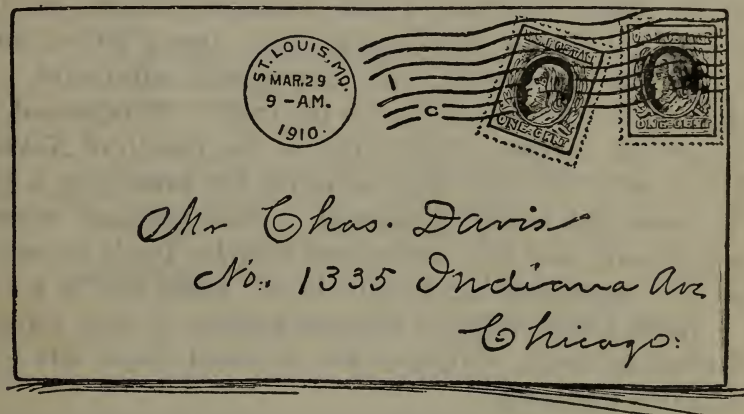 ST. LOUIS, MO.
MAR. 29
9 - A.M.
1910.
1
C
U.S. POSTAGE
ONE-CENT
ONE-CENT
Mr Chas. Davis
No. 1335 Indiana Ave
Chicago.